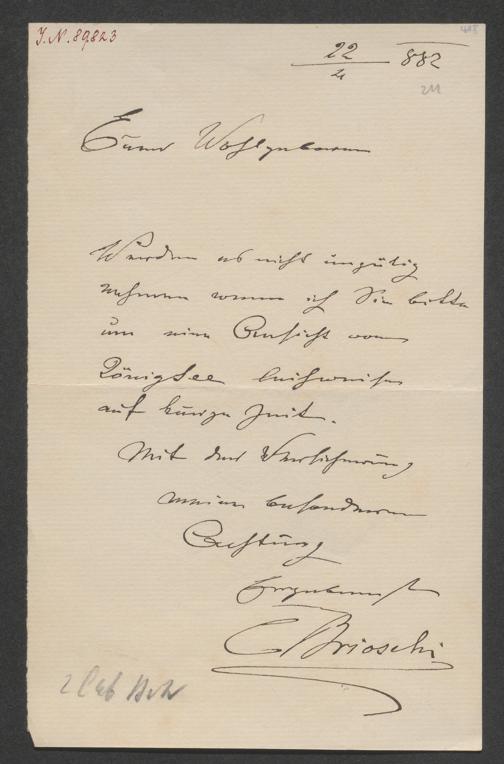 J.N. 89823
22/4 882
211
Euer Wohlgeboren
Würden es nicht ungütig
nehmen wenn ich Sie bitte
um eine Ansicht vom
Königsee leihweise
auf kurze Zeit.
Mit der Versicherung
meiner besonderen
Achtung
Ergebenst
C Brioschi